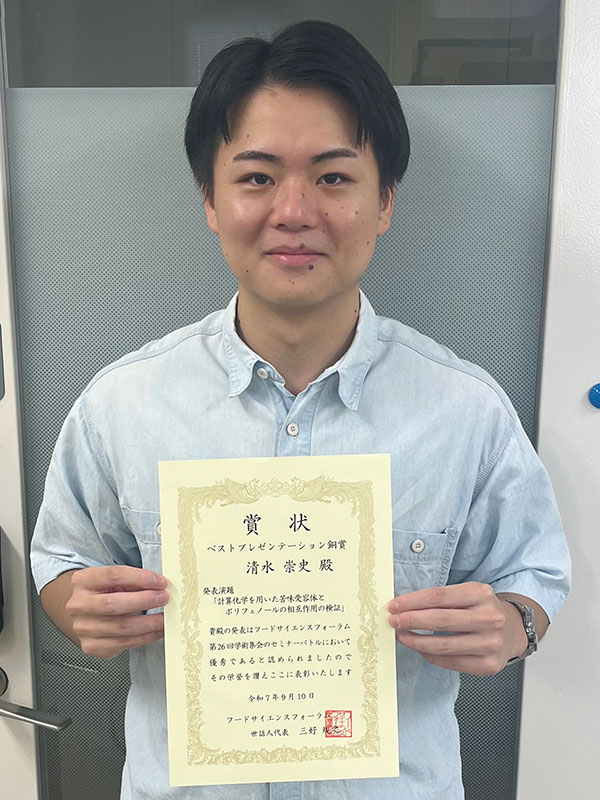 賞状
ベストプレゼンテーション銅賞
清水 崇史 殿
発表演題
「計算化学を用いた苦味受容体と
ポリフェノールの相互作用の検証」
貴殿の発表はフードサイエンスフォーラム
第26回学術集会のセミナーバトルにおいて
優秀であると認められましたので
その栄誉を讃えここに表彰いたします
令和7年9月10日
フードサイエンスフォーラム
世話人代表 三好 規之